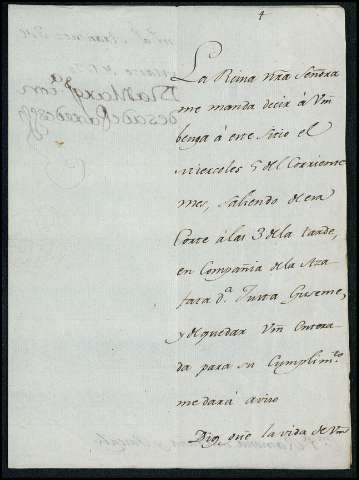 4
La Reina nr̃a Señora
me manda decir à Vm̃
benga à este Sitio el
Miercoles 5 del Corriente
mes, saliendo de esa
Corte à las 3 de la tarde,
en Compañia de la Aza
fata d.ª Justa Guseme,
y de quedar Vm̃ Entera-
da para su Cumplim.to
me dará aviso
Dios gũe la vida de Vm̃